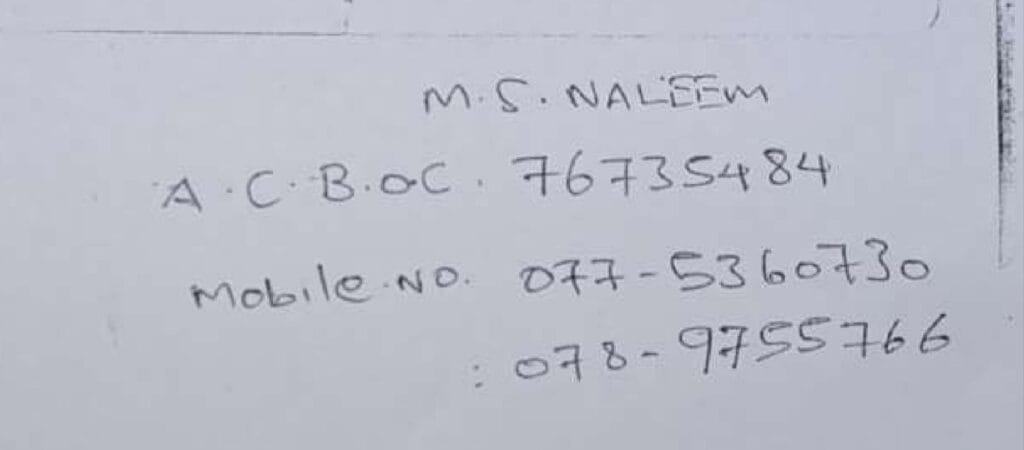 M.S. NALEEM
A.C.B.OC. 76735484
Mobile.NO. 077-5360730
: 078-9755766